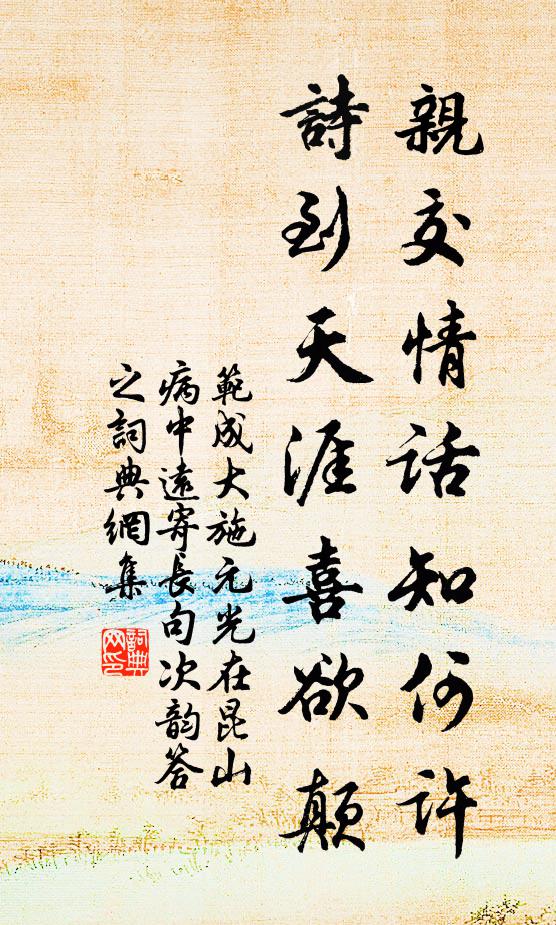 親交情話知何許
詩到天涯喜欲顛
範成大施元光在昆山
病中遠寄長句次韵答
之詞典網集
詞典
网印